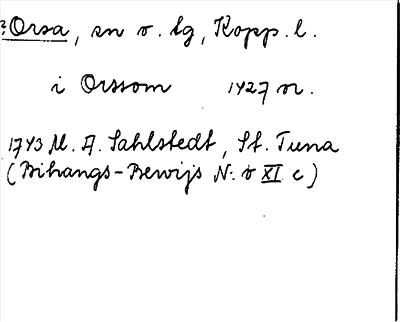 ?Orsa, sn o. lg, Kopp. l.
i Orssom 1427 or.
1743 M. A. Sahlstedt, St. Tuna
(Bihangs-Bewijs N:o XI c)